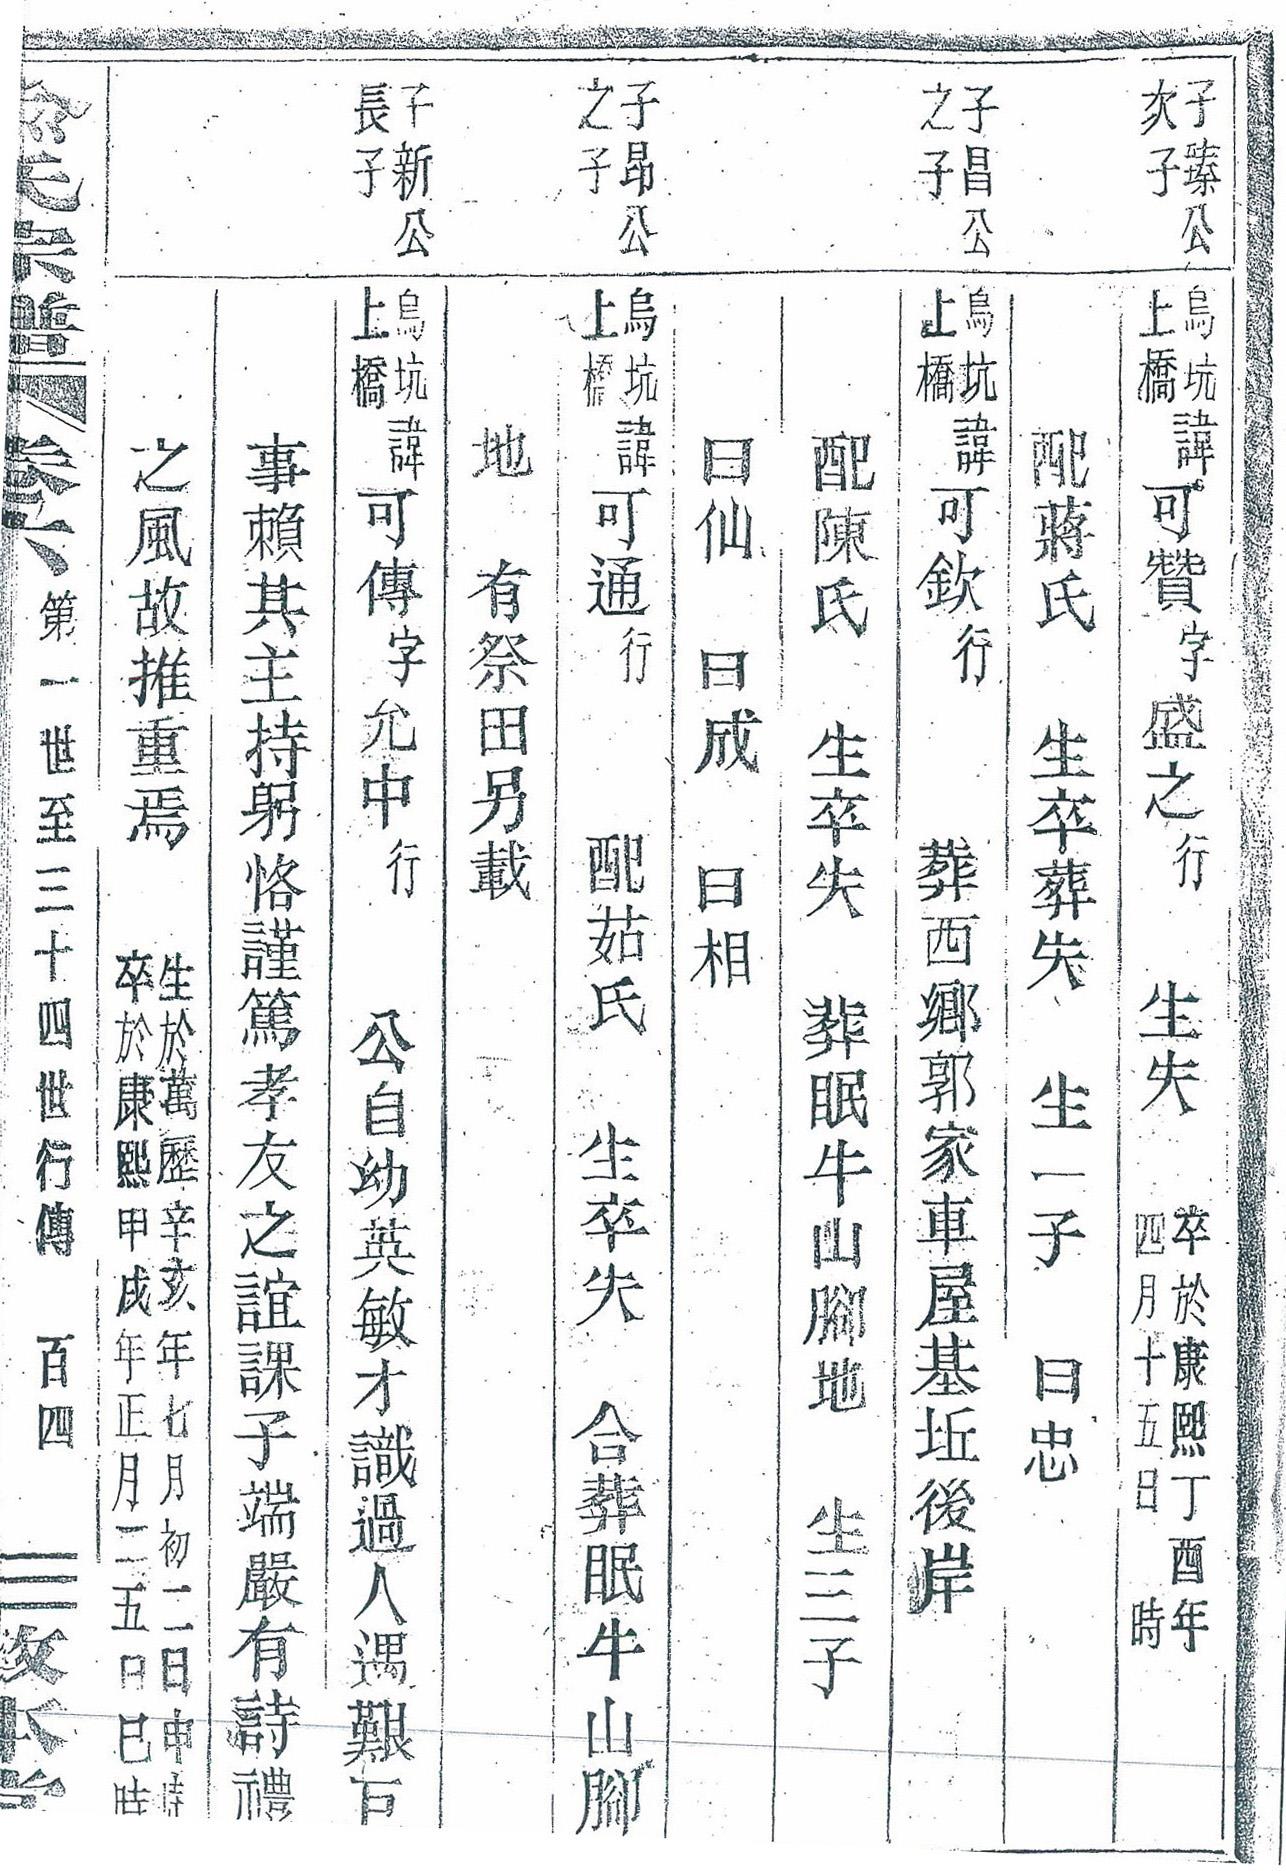 子臻公
次子
烏坑
上橋
諱可贊字盛之行 生失 卒於康熙丁酉年
四月十五日 時
配蔣氏 生卒葬失 生一子 曰忠
子昌公
之子
烏坑
上橋
諱可欽行 葬西鄉郭家車屋基坵後岸
配陳氏 生卒失 葬眠牛山腳地 生三子
曰仙 曰成 曰相
子昂公
之子
烏坑
上橋
諱可通行 配茹氏 生卒失 合葬眠牛山腳
地 有祭田另載
子新公
長子
烏坑
上橋
諱可傳字允中行 公自幼英敏才識過人遇艱巨
事賴其主持躬恪謹篤孝友之誼課子端嚴有詩禮
之風故推重焉 生於萬歷辛亥年七月初二日申時
卒於康熙甲戌年正月二五日巳時
氏宗譜 卷六 第一世至三十四世行傳 百四 敦本堂